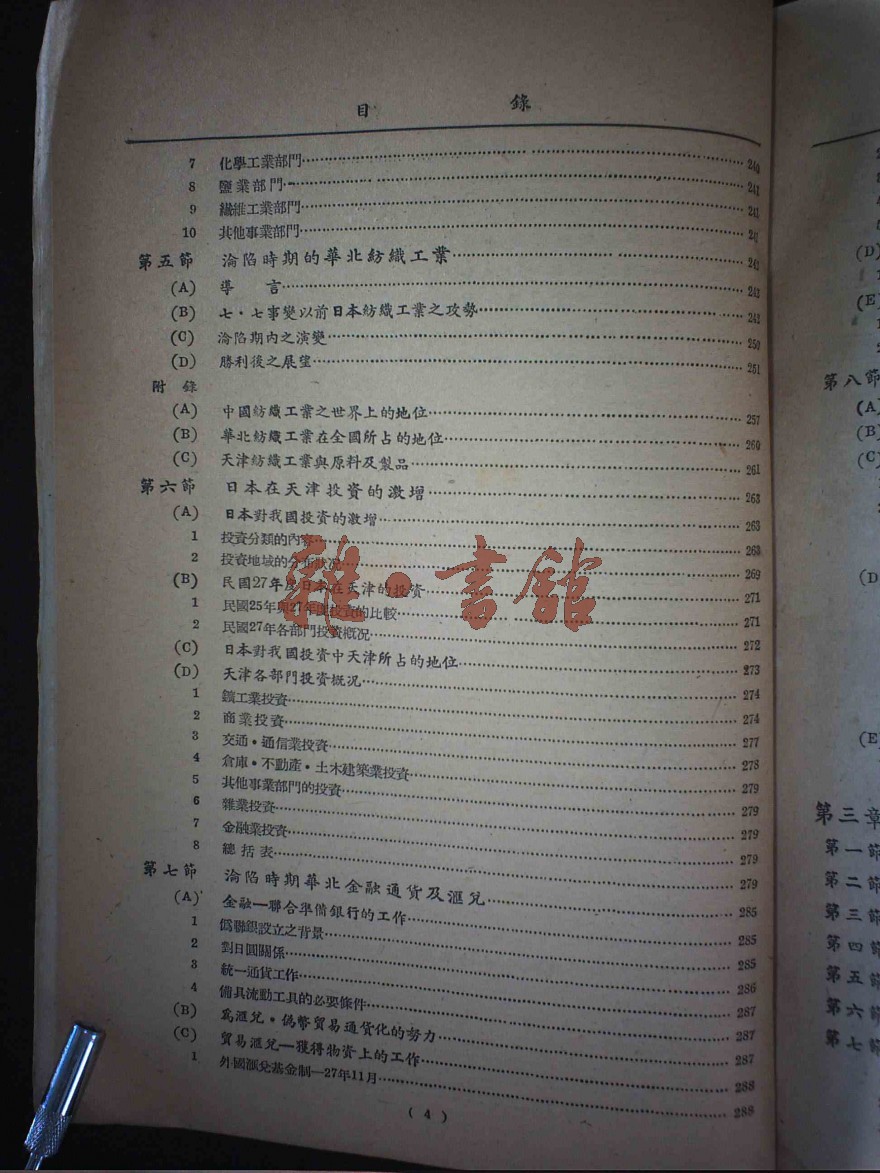 目 錄
7 化學工業部門 240
8 鹽業部門 241
9 纖維工業部門 241
10 其他事業部門 241
第五節 淪陷時期的華北紡織工業 242
(A) 導 言 242
(B) 七・七事變以前日本紡織工業之攻勢 242
(C) 淪陷期內之演變 250
(D) 勝利後之展望 251
附 錄
(A) 中國紡織工業之世界上的地位 257
(B) 華北紡織工業在全國所占的地位 260
(C) 天津紡織工業與原料及製品 261
第六節 日本在天津投資的激增 263
(A) 日本對我國投資的激增 263
1 投資分類的內容 263
2 投資地域的分布狀況 269
(B) 民國27年度日本在天津的投資 271
1 民國25年與27年度投資的比較 271
2 民國27年各部門投資概况 272
(C) 日本對我國投資中天津所占的地位 273
(D) 天津各部門投資概况 274
1 鑛工業投資 274
2 商業投資 277
3 交通・通信業投資 278
4 倉庫・不動產・土木建築業投資 279
5 其他事業部門的投資 279
6 雜業投資 279
7 金融業投資 279
8 總括表 279
第七節 淪陷時期華北金融通貨及滙兌 285
(A) 金融—聯合準備銀行的工作 285
1 僞聯銀設立之背景 285
2 對日圓關係 286
3 統一通貨工作 287
4 備具流動工具的必要條件 287
(B) 爲滙兌・僞幣貿易通貨化的努力 287
(C) 貿易滙兌—獲得物資上的工作 288
1 外國滙兌基金制—27年11月 288
( 4 )
雜・書館
(D)
(E
第八節
(A)
(B)
(C)
(D
(E
第三章
第一節
第二節
第三節
第四節
第五節
第六節
第七節